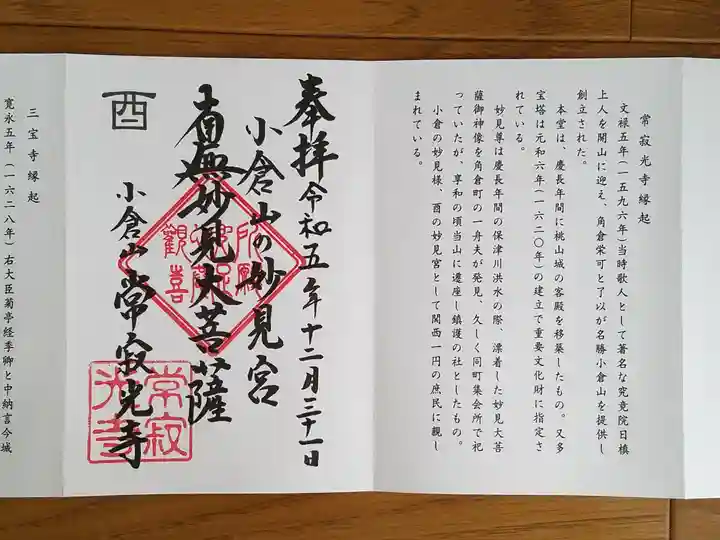 常寂光寺縁起
文禄五年(一五九六年)当時歌人として著名な究竟院日禛
上人を開山に迎え、角倉栄可と了以が名勝小倉山を提供し
創立された。
本堂は、慶長年間に桃山城の客殿を移築したもの。又多
宝塔は元和六年(一六二〇年)の建立で重要文化財に指定さ
れている。
妙見尊は慶長年間の保津川洪水の際、漂着した妙見大菩
薩御神像を角倉町の一舟夫が発見、久しく同町集会所で祀
っていたが、享和の頃当山に遷座し鎮護の社としたもの。
小倉の妙見様、酉の妙見宮として関西一円の庶民に親し
まれている。
奉拝 令和五年十二月三十一日
小倉山の妙見宮
南無妙見大菩薩
小倉山 常寂光寺
酉
常寂
光寺
三宝寺縁起
寛永五年(一六二八年)右大臣菊亭経季卿と中納言今城